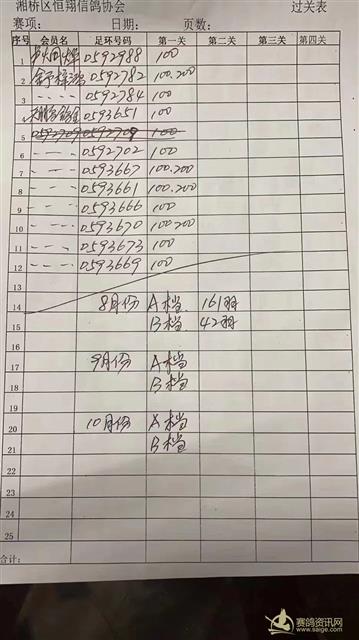 湘桥区恒翔信鸽协会 过关表
赛项: 日期: 页数:
序号 会员名 足环号码 第一关 第二关 第三关 第四关
1 0592988 100
2 0592782 100.200
3 0592784 100
4 0593651 100
5 0592709 0592709 100
6 0592702 100
7 0593667 100.200
8 0593661 100.200
9 0593666 100
10 0593670 100.200
11 0593673 100
12 0593669 100
13
14 8月份 A档. 161羽
15 B档. 42羽
16
17 9月份 A档
18 B档
19
20 10月份 A档
21 B档
22
23
24
25
合计:
赛鸽资讯网
www.saige.com